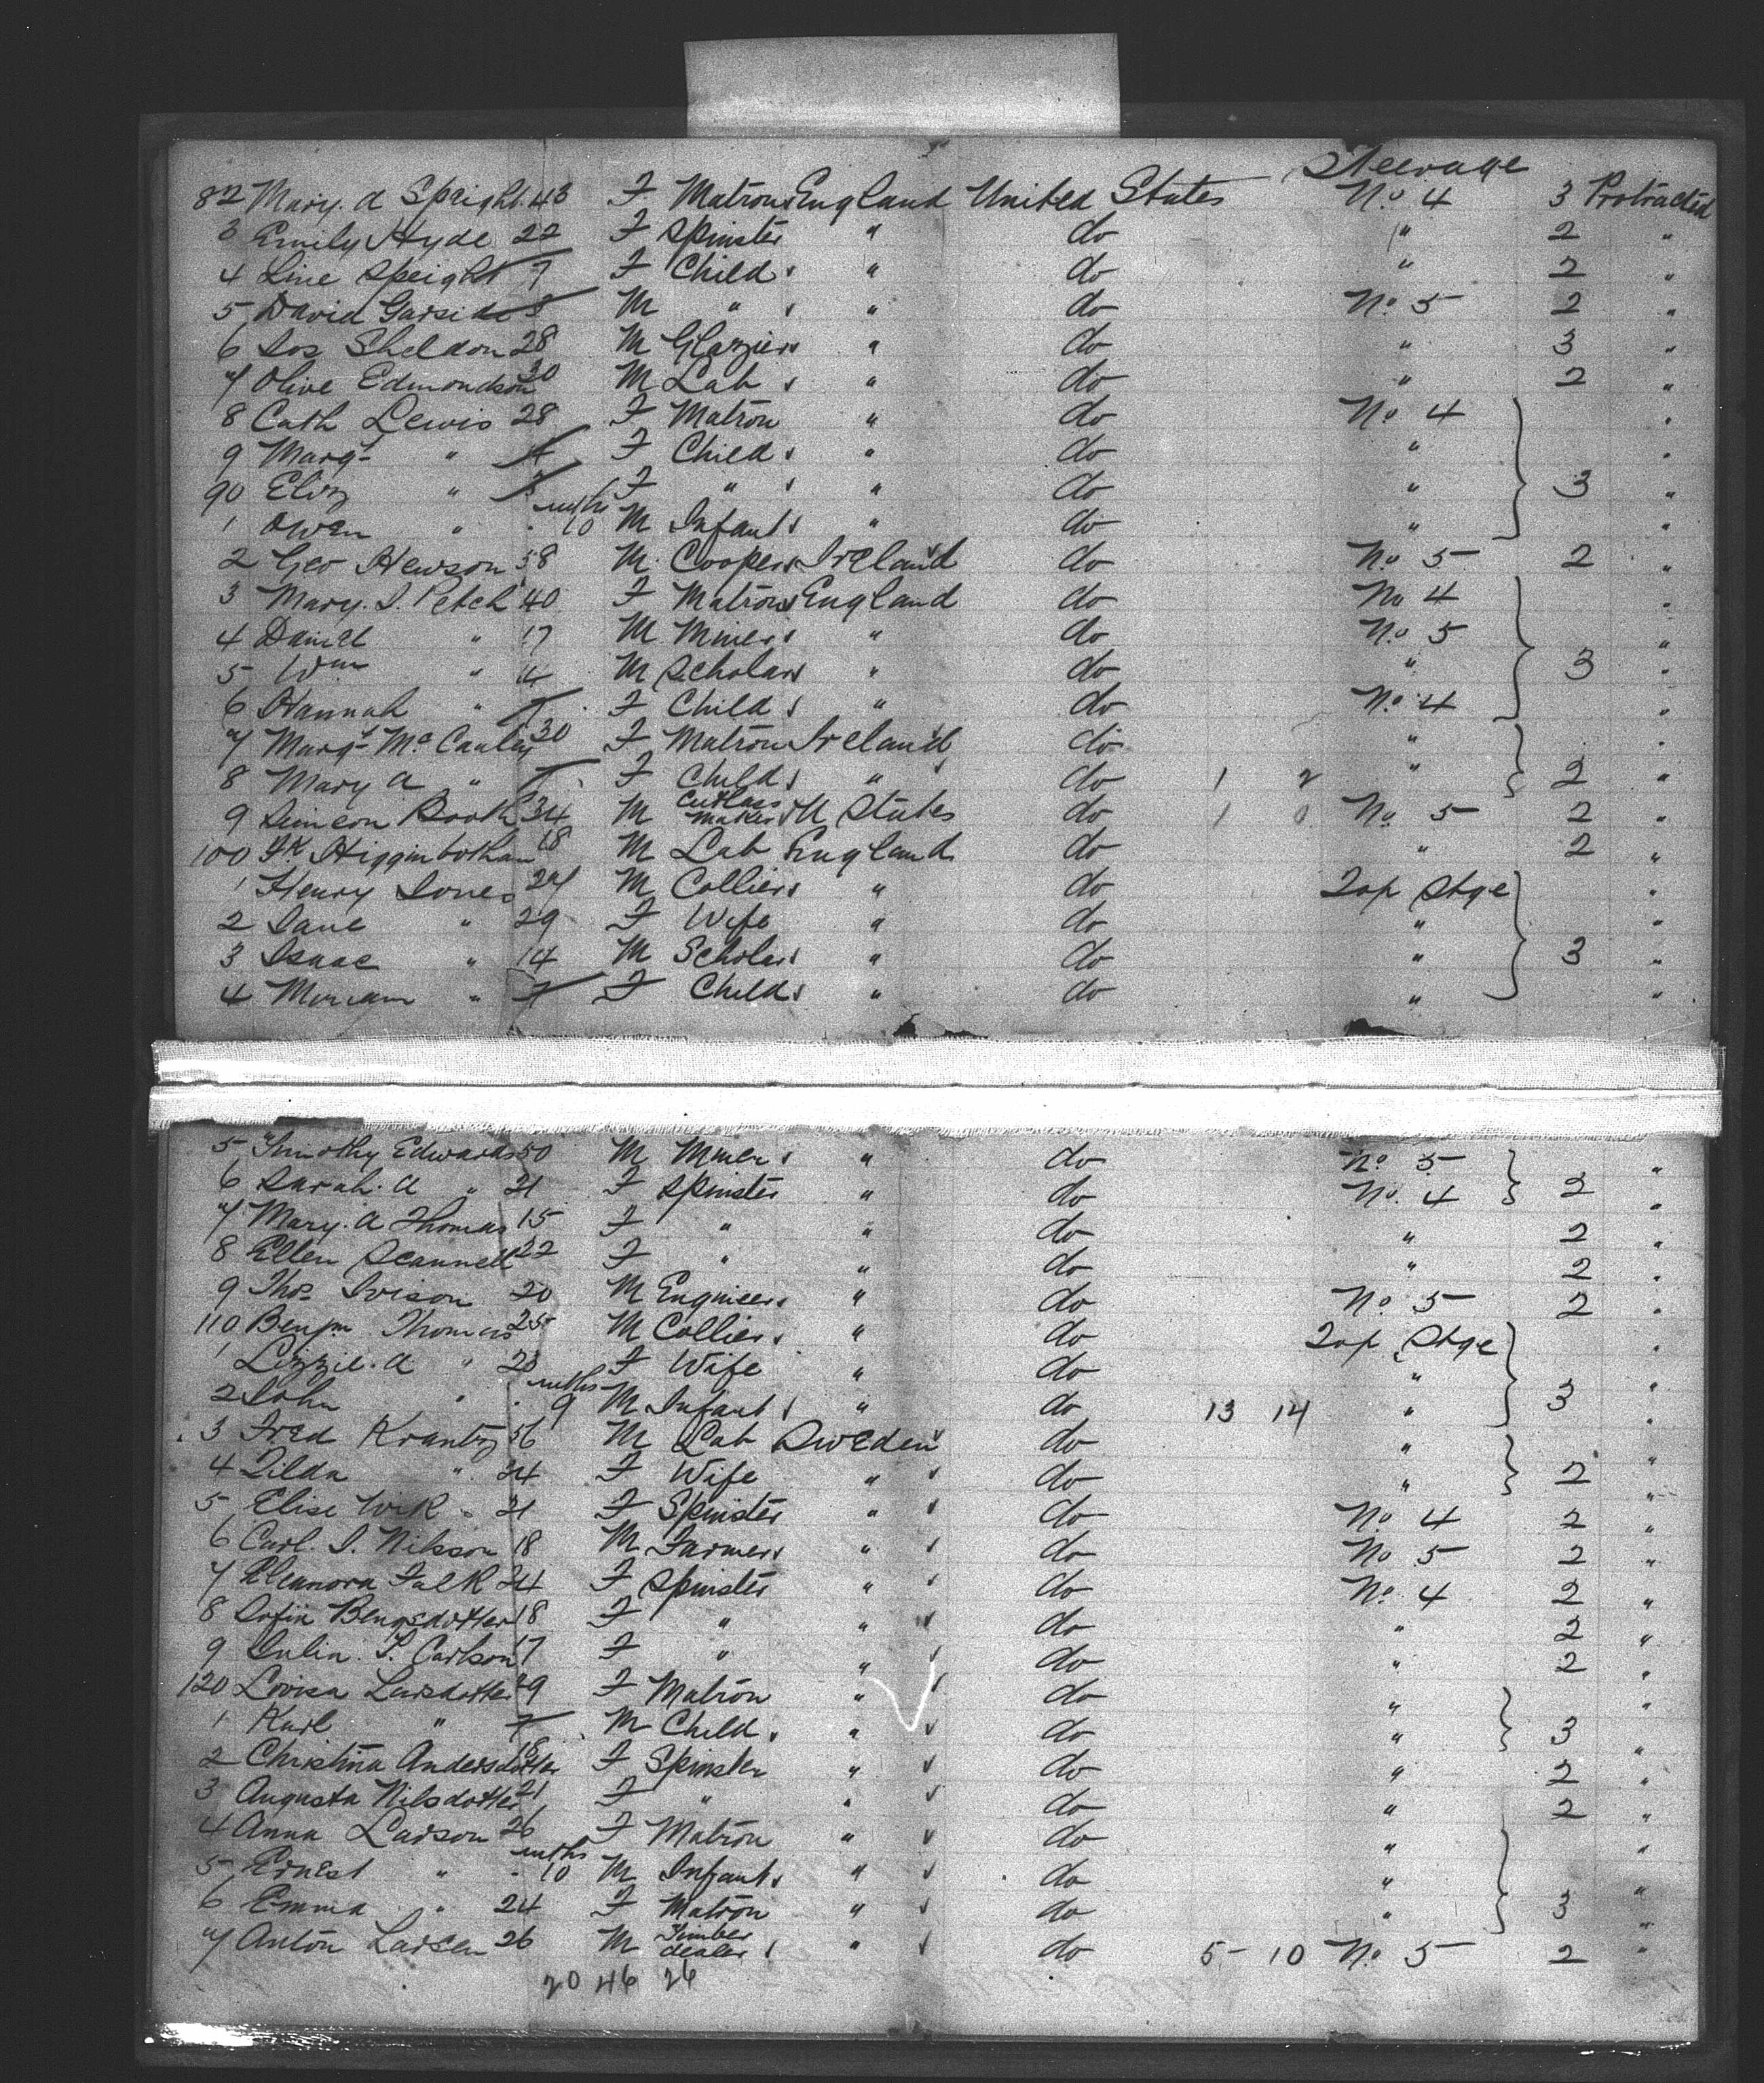 Steerage
82 Mary. A Speight 43 F Matron England United States No. 4 3 Protracted
3 Emily Hyde 22 F Spinster " do " 2 "
4 Line Speight 7 F Child " do " 2 "
5 David Garside 8 M " " do No. 5 2 "
6 Jos Sheldon 28 M Glazier " do " 3 "
7 Olive Edmondson 30 M Lab " do " 2 "
8 Cath Lewis 28 F Matron " do No 4 "
9 Margt " F Child " do " "
90 Eliz " F " " do " 3 "
1 Owen " mths 10 M Infant " do " "
2 Geo Hewson 58 M Cooper Ireland do No 5 2 "
3 Mary. J. Petch 40 F Matron England do No 4 "
4 Daniel " 17 M Miner " do No. 5 "
5 Wm " 14 M Scholar " do " 3 "
6 Hannah " F Child " do No. 4 "
7 Margt McCauley 30 F Matron Ireland do " "
8 Mary A " F Child " do 1 2 " 2 "
9 Simeon Booth 34 M Cutlass maker U States do 1 0 No. 5 2 "
100 Fk Higginbotham 18 M Lab England do " 2 "
1 Henry Jones 29 M Collier " do Top Stge "
2 Jane " 29 F Wife " do " "
3 Isaac " 14 M Scholar " do " 3 "
4 Miriam " 7 F Child " do " "
5 Timothy Edwards 50 M Miner " do No. 5 "
6 Sarah. A " 21 F Spinster " do No. 4 2 "
7 Mary. A Thomas 15 F " " do " 2 "
8 Ellen Scannell 22 F " " do " 2 "
9 Thos Ivison 20 M Engineer " do No. 5 2 "
110 Benjm Thomas 25 M Collier " do Top Stge "
1 Lizzie. A " 23 F Wife " do " "
2 John " mths 9 M Infant " do 13 14 " 3 "
3 Fred Krantz 56 M Lab Sweden do " "
4 Tilda " 34 F Wife " do " 2 "
5 Elise Wik 21 F Spinster " do No. 4 2 "
6 Carl. J. Nilsson 18 M Farmer " do No 5 2 "
7 Eleanora Falk 24 F Spinster " do No. 4 2 "
8 Sofia Bengsdotter 18 F " " do " 2 "
9 Julia. S. Carlson 17 F " " do " 2 "
120 Lovisa Larsdotter 29 F Matron " do " "
1 Karl " 7 M Child " do " 3 "
2 Christina Andersdotter 18 F Spinster " do " 2 "
3 Augusta Nilsdotter 21 F " " do " 2 "
4 Anna Larson 26 F Matron " do " "
5 Ernest " mths 10 M Infant " do " "
6 Emma " 24 F Matron " do " 3 "
7 Anton Larsen 26 M Timber dealer " do 5 10 No. 5 2 "
20 46 26